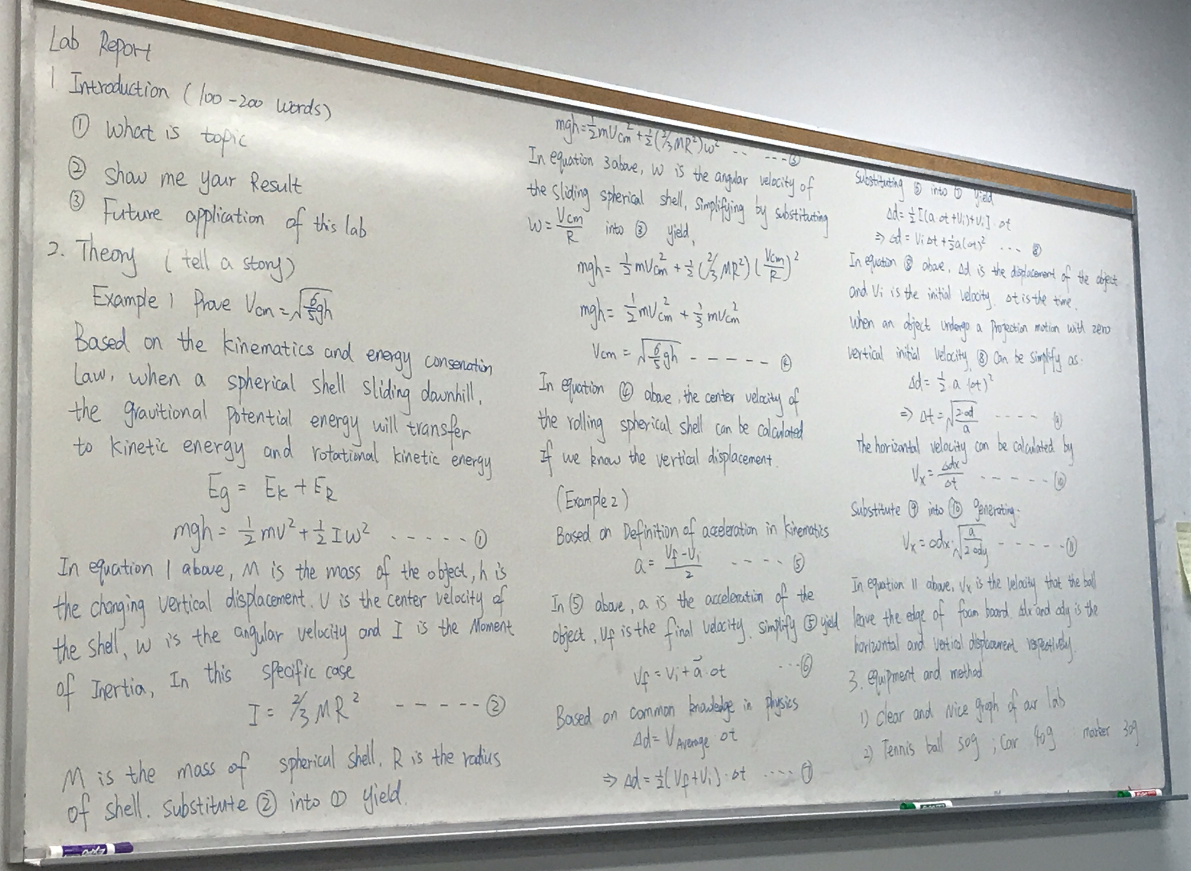 Lab Report
1 Introduction (100-200 words)
① What is topic
② Show me your Result
③ Future application of this lab
2. Theory (tell a story)
Example 1 Prove Vcm = √(6/5 gh)
Based on the kinematics and energy consenation
Law, when a spherical shell sliding downhill,
the gravitional potential energy will transfer
to kinetic energy and rotational kinetic energy
Eg = Ek + ER
mgh = 1/2 mv² + 1/2 Iw² ----- ①
In equation 1 above, M is the mass of the object, h is
the changing vertical displacement. U is the center velocity of
the shell, w is the angular velocity and I is the Moment
of Inertia, In this specific case
I = 2/3 MR² ----- ②
M is the mass of spherical shell, R is the radius
of shell. substitute ② into ① yield.
mgh = 1/2 mVcm² + 1/2 (2/3 MR²) w² -- ---- ③
In equation 3 above, w is the angular velocity of
the sliding spherical shell, simplifying by substituting
w = Vcm/R into ③ yield,
mgh = 1/2 mVcm² + 1/2 (2/3 MR²) (Vcm/R)²
mgh = 1/2 mVcm² + 1/3 mVcm²
Vcm = √(6/5 gh) ----- ④
In equation ④ above, the center velocity of
the rolling spherical shell can be calculated
If we know the vertical displacement.
(Example 2)
Based on Definition of acceleration in kinematics
a = (Vf - Vi)/2 ---- ⑤
In ⑤ above, a is the acceleration of the
object, Vf is the final velocity. simplify ⑤ yield
Vf = Vi + a⃗ · Δt --- ⑥
Based on common knowledge in physics
Δd = VAverage Δt
⇒ Δd = 1/2 (Vf + Vi) · Δt ---- ⑦
Substituting ⑥ into ⑦ yield
Δd = 1/2 [(a Δt + Vi) + Vi] · Δt
⇒ Δd = Vi Δt + 1/2 a(Δt)² --- ⑧
In equation ⑧ above, Δd is the displacement of the object
and Vi is the initial velocity. Δt is the time.
When an object undergo a projection motion with zero
vertical initial velocity, ⑧ can be simplify as.
Δd = 1/2 · a (Δt)²
⇒ Δt = √(2·Δd/a) ---- ⑨
The horizontal velocity can be calculated by
Vx = Δdx/Δt ----- ⑩
Substitute ⑨ into ⑩ generating.
Vx = Δdx · √(a/2·Δdy) ----- ⑪
In equation 11 above, Vx is the velocity that the ball
leave the edge of foam board. Δdx and Δdy is the
horizontal and vertical displacement respectively.
3. equipment and method
1) Clear and Nice graph of our lab
2) Tennis ball 50g ; Car 40g marker 30g